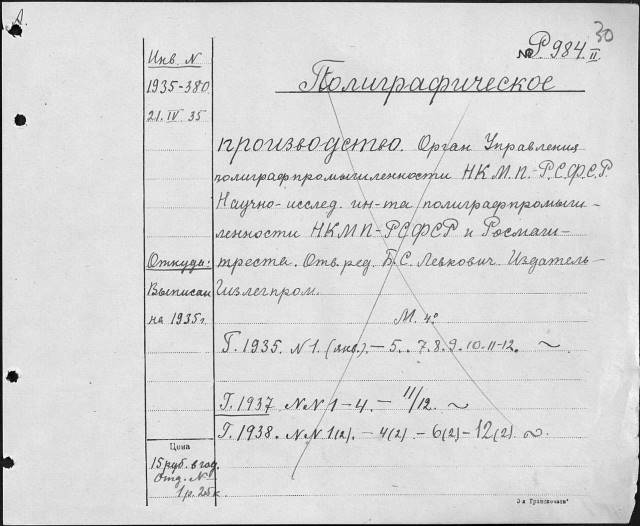 А.
30
№ Р 984 II
Инв. N
1935-380
21.IV 35
Откуда:
Выписан
на 1935 г
Цена
15 руб. в год.
Отд. N
1 р. 25 к.
Полиграфическое
производство. Орган Управления
полиграфпромышленности НКМП-РСФСР
Научно-исслед. ин-та полиграфпромыш-
ленности НКМП-РСФСР и Росмаш-
треста. Отв. ред. Б.С. Левкович. Издатель-
Гизлегпром.
М. 4°
Г. 1935. N 1. (янв.) - 5.. 7. 8. 9. 10. 11-12. ~
Г. 1937 NN 1-4. - 11/12. ~
Г. 1938. NN 1(2). - 4(2) - 6(2) - 12(2) ~
З-я Транспечати"